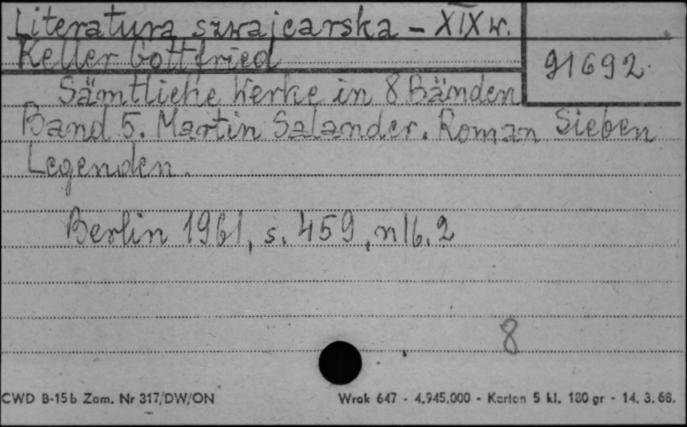 Literatura szwajcarska - XIX w.
Keller Gottfried
91692
Sämtliche Werke in 8 Bänden
Band 5. Martin Salander. Roman Sieben
Legenden.
Berlin 1961, s. 459, nlb. 2
8
CWD B-15b Zam. Nr 317/DW/ON
Wrak 647 - 4.945.000 - Karton 5 kl. 180 gr - 14. 3. 68.